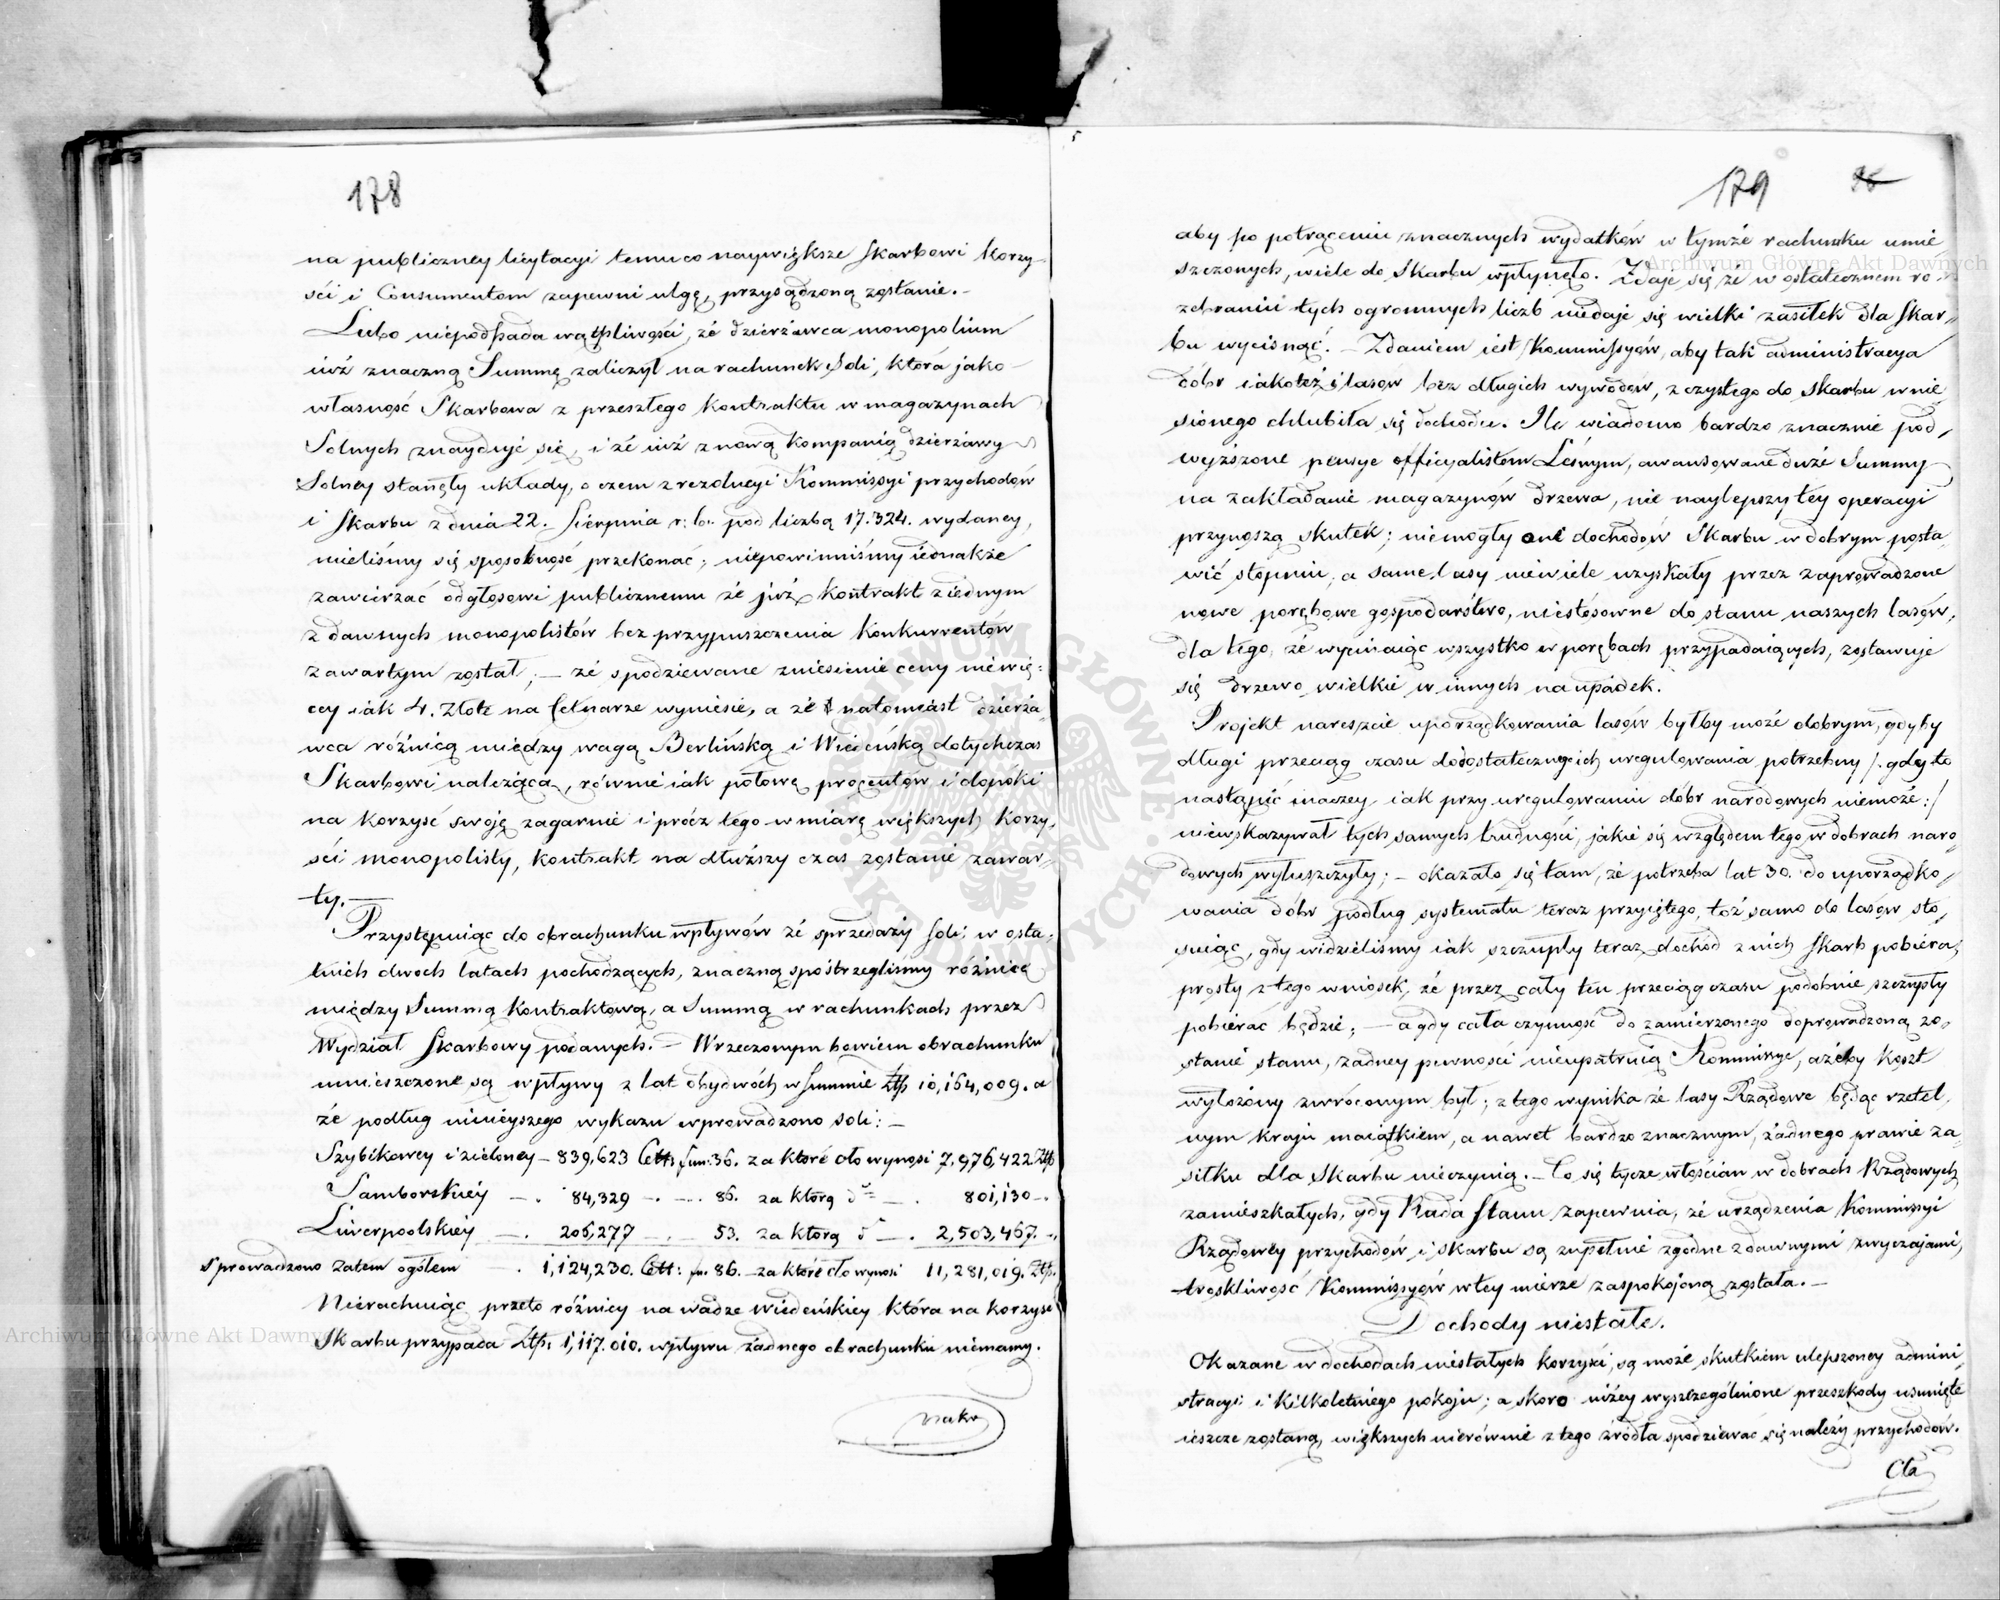 178
na publiczney licytacyi temu co naywiększe Skarbowi korzy-
ści i Consumentom zapewni ulgę, przysądzoną zostanie.-
Lubo niepodpada wątpliwości, że dzierżawca monopolium
iuż znaczną Summę zaliczył na rachunek Soli, która jako
własność Skarbowa z przeszłego kontraktu w magazynach
Solnych znayduje się, i że iuż z nową kompanią dzierżawy
Solney stanęły układy, o czem z rezolucyi Kommissyi przychodów
i Skarbu z dnia 22. Sierpnia r: b. pod liczbą 17.324. wydaney,
mieliśmy się sposobność przekonać; niepowinniśmy iednakże
zawierzać odgłosowi publicznemu że już kontrakt z iednym
z dawnych monopolistów bez przypuszczenia konkurrentów
zawartym został; — że spodziewane zniesienie ceny niewię-
cey iak 4. Złote na Cetnarze wyniesie, a że natomiast dzierża-
wca różnicą między wagą Berlińską i Wiedeńską dotychczas
Skarbowi należącą, równie iak połowę procentów i dopóki
na korzyść swoję zagarnie i prócz tego w miarę większych korzy-
ści monopolisty, kontrakt na dłuższy czas zostanie zawar-
ty.—
Przystępuiąc do obrachunku wpływów ze sprzedaży Soli w osta-
tnich dwoch latach pochodzących, znaczną spostrzegliśmy różnicę
między Summą kontraktową, a Summą w rachunkach przez
Wydział Skarbowy podanych. — W rzeczonym bowiem obrachunku
umieszczone są wpływy z lat obydwóch w Summie Złp 10,164,009. a
że podług ninieyszego wykazu wprowadzono soli: —
Szybikowey i zieloney — 839,623 Cett: fun: 36. za które cło wynosi 7,976,422 Złp
Samborskiey — . 84,329 — . — 86. za którą do — . 801,130 — .
Liwerpoolskiey — . 206,277 — . — 53. za którą do — . 2,503,467. — .
Sprowadzono zatem ogółem — . 1,124,230. Cett: fu. 86. — za które cło wynosi 11,281,019. Złp.
Nierachuiąc przeto różnicy na wadze wiedeńskiey która na korzyść
Skarbu przypada Złp. 1,117.010. wpływu żadnego obrachunku niemamy.
179 95
aby po potrąceniu znacznych wydatków w tymże rachunku umie
szczonych, wiele do Skarbu wpłynęło. Zdaje się że w ostatecznem ro-
zebraniu tych ogromnych liczb niedaje się wielki zasiłek dla Skar-
bu wycisnąć. — Zdaniem iest Kommissyów, aby tak administracya
dóbr iakoteż i lasów bez długich wywodów, z czystego do Skarbu wnie
sionego chlubiła się dochodu. Ile wiadomo bardzo znacznie pod-
wyższone pensye officyalistom Leśnym, awansowane duże Summy
na zakładanie magazynów drzewa, nie naylepszy tey operacyi
przynoszą skutek; niemogły one dochodów Skarbu w dobrym posta-
wić stopniu, a same lasy niewiele uzyskały przez zaprowadzone
nowe porębowe gospodarstwo, niestosowne do stanu naszych lasów,
dla tego, że wycinaiąc wszystko w porębach przypadaiących, zostawuje
się drzewo wielkie w innych na upadek.
Projekt nareszcie uporządkowania lasów byłby może dobrym, gdyby
długi przeciąg czasu do dostatecznego ich uregulowania potrzebny /: gdy to
nastąpić inaczey iak przy uregulowaniu dóbr narodowych niemoże :/
niewskazywał tych samych trudności, jakie się względem tego w dobrach naro
dowych wyłuszczyły; — okazało się tam, że potrzeba lat 30. do uporządko-
wania dóbr podług systematu teraz przyiętego, toż samo do lasów sto-
suiąc, gdy widzieliśmy iak szczupły teraz dochód z nich Skarb pobiera,
prosty z tego wniosek, że przez cały ten przeciąg czasu podobnie szczupły
pobierać będzie; — a gdy cała czynność do zamierzonego doprowadzoną zo-
stanie stanu, żadney pewności nieupatruią Kommissye, ażeby koszt
wyłożony zwróconym był; z tego wynika że lasy Rządowe będąc rzetel-
nym kraju maiątkiem, a nawet bardzo znacznym, żadnego prawie za-
siłku dla Skarbu nieczynią. — Co się tycze włościan w dobrach Rządowych
zamieszkałych, gdy Rada Stanu zapewnia, że urządzenia Kommissyi
Rządowey przychodów i Skarbu są zupełnie zgodne z dawnymi zwyczajami,
troskliwość Kommissyów w tey mierze zaspokojoną została. —
Dochody niestałe.
Okazane w dochodach niestałych korzyści, są może skutkiem ulepszoney admini
stracyi i kilkoletniego pokoju; a skoro niżey wyszczególnione przeszkody usunięte
ieszcze zostaną, większych nierównie z tego źródła spodziewać się należy przychodów.
Cła
Archiwum Główne Akt Dawnych
Archiwum Główne Akt Dawnych
ARCHIWUM GŁÓWNE AKT DAWNYCH